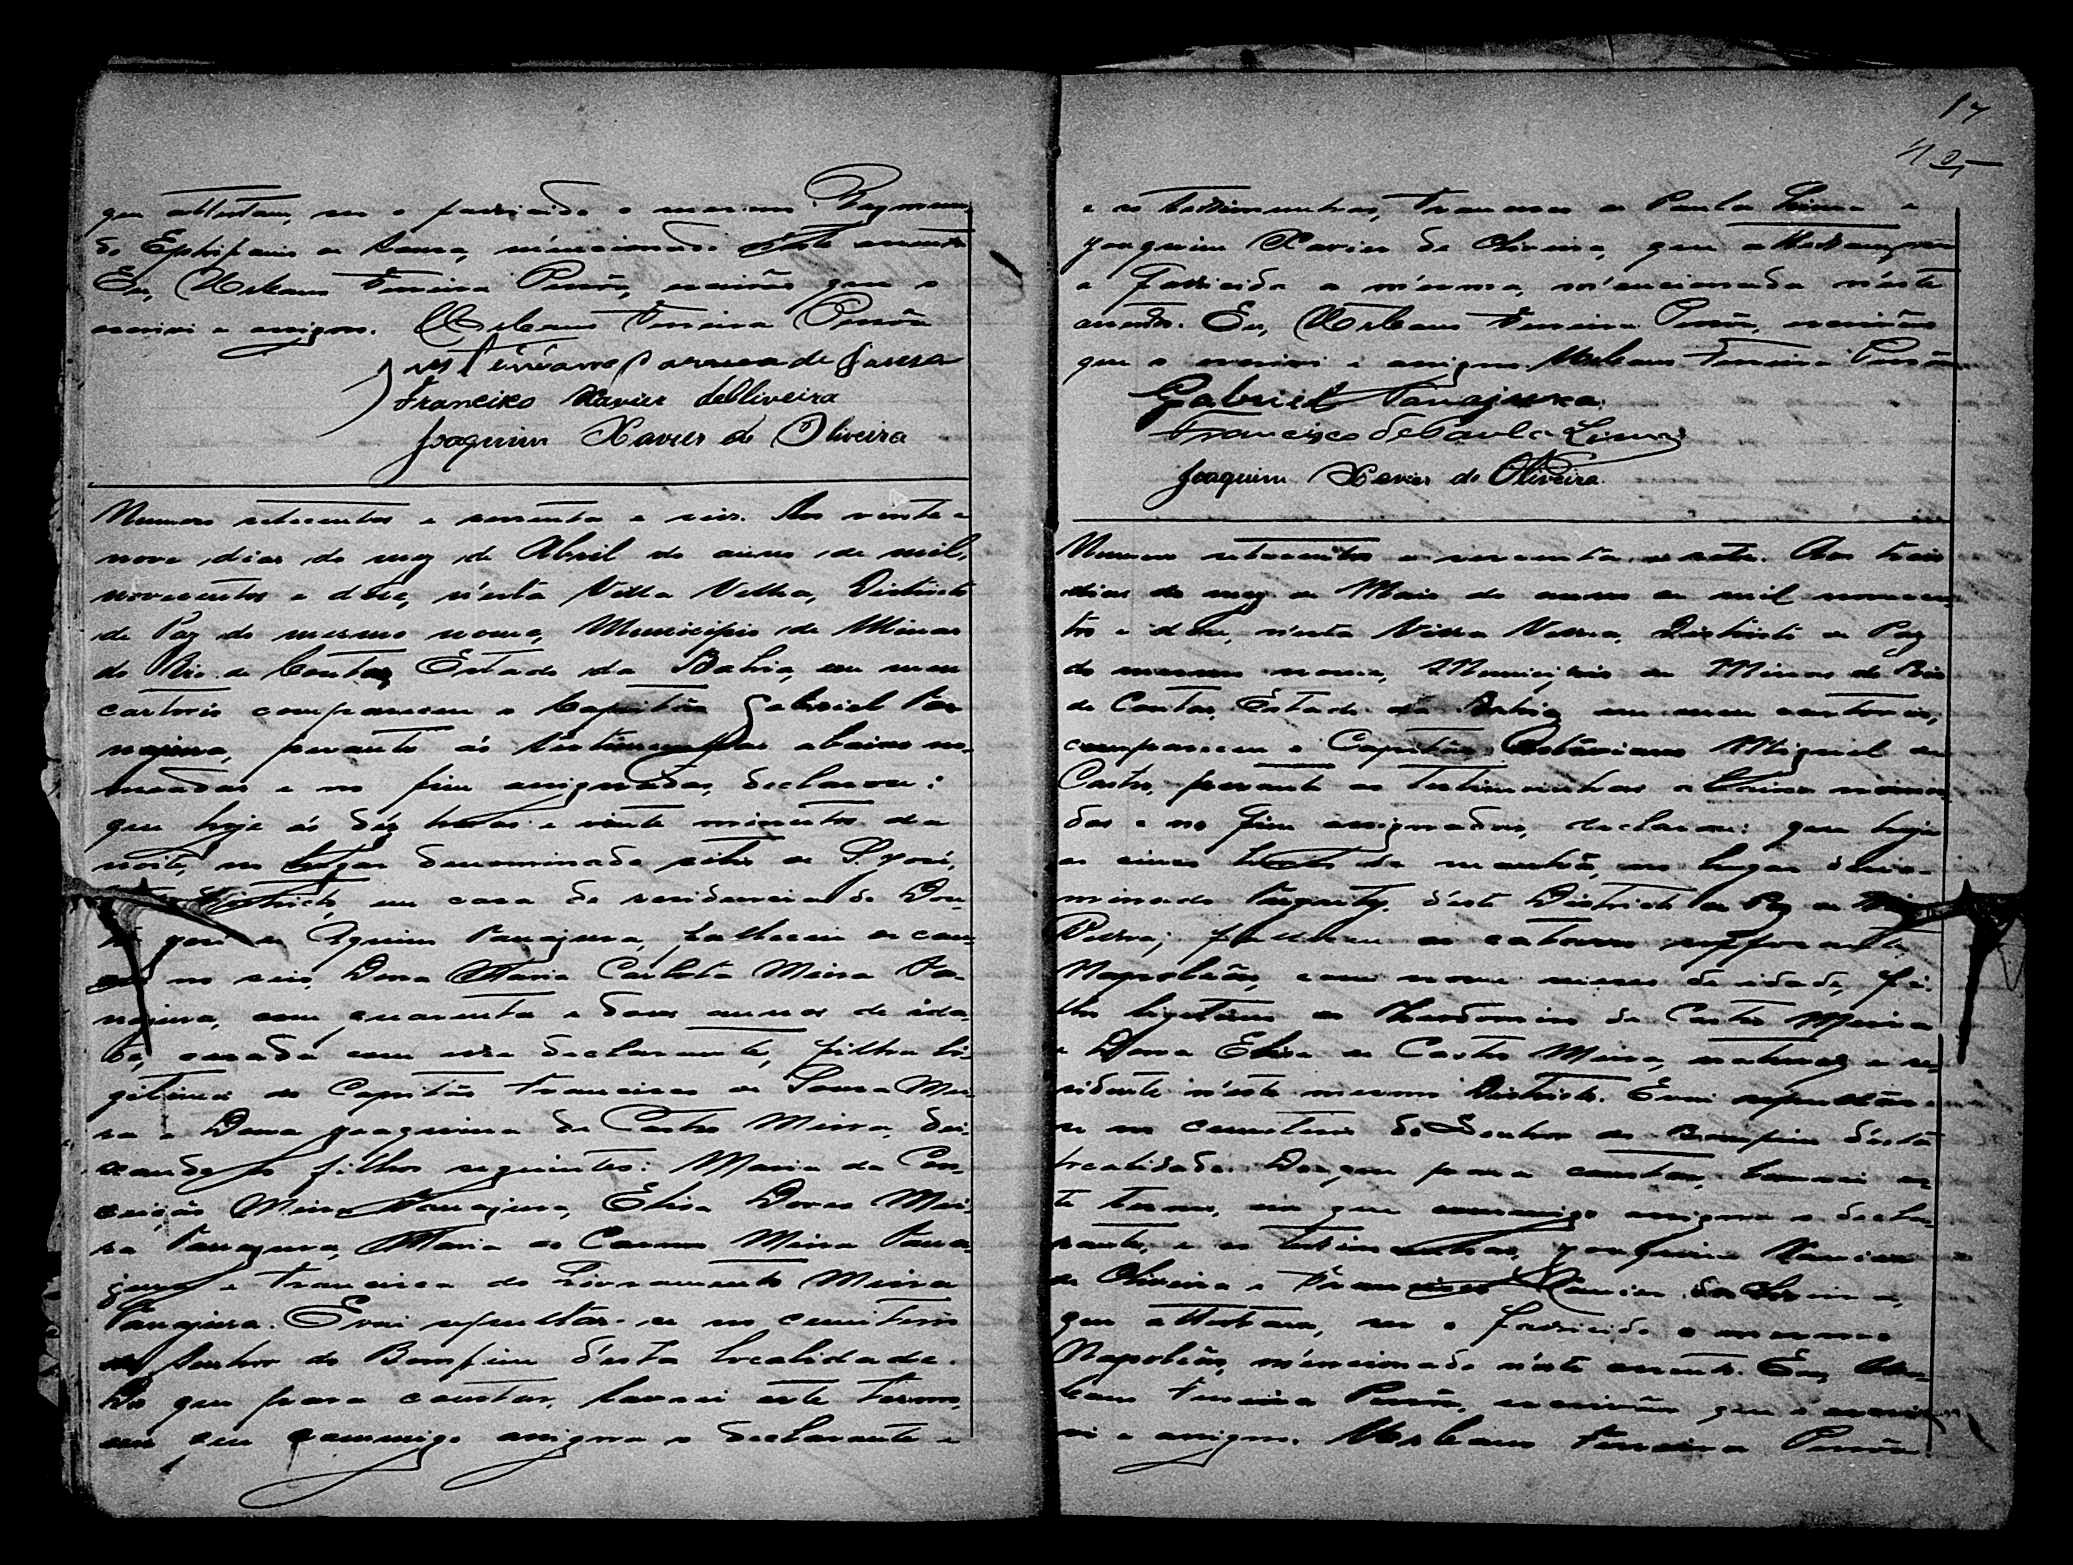 que attestam, ser o fallecido o mesmo Raymun-
do Ephifanio de Souza, mencionado n'este assento
Eu, Urbano Ferreira Penão, escrivão que o
escrevi e assigno. Urbano Ferreira Penão
Correa de Souza
Francisco Xavier de Oliveira
Joaquim Xavier de Oliveira
Numero setecentos e sessenta e seis. Aos vinte e
nove dias do mez de Abril do anno de mil,
novecentos e doze, n'esta Villa Velha, Districto
de Paz do mesmo nome, Municipio de Minas
do Rio de Contas, Estado da Bahia, em meu
cartorio compareceu o Capitão Gabriel Ta-
najura, perante ás testemunhas abaixo no-
meadas e no fim assignadas, declarou:
que hoje ás déz horas e vinte minutos da
noite, no lugar denominado sitio de S. José,
Districto, em casa de residencia do Dou-
tor José de Aquino Tanajura, falleceu de can-
cro no seio, Dona Maria Carlota Meira Ta-
najura, com quarenta e dous annos de ida-
de, casada com elle declarante, filha li-
gitima do Capitão Francisco de Souza Mei-
ra e Dona Joaquina de Castro Meira, dei-
xando os filhos seguintes: Maria da Con-
ceição Meira Tanajura, Elisa Dores Mei-
ra Tanajura, Maria do Carmo Meira Tana-
jura e Francisca do Livramento Meira
Tanajura. E vai sepultar-se no cemiterio
do Senhor do Bomfim d'esta localidade.
Do que para constar, lavrei este termo,
em que commigo assigna o declarante e
17
as testemunhas, Francisco de Paula Lima e
Joaquim Xavier de Oliveira, que attestam, ser
a fallecida a mesma, mencionada n'este
assento. Eu, Urbano Ferreira Penão, escrivão
que o escrevi e assigno. Urbano Ferreira Penão
Gabriel Tanajura
Francisco de Paula Lima
Joaquim Xavier de Oliveira
Numero setecentos e sessenta e sete. Aos tres
dias do mez de Maio do anno de mil novecen-
tos e doze, n'esta Villa Velha, Districto de Paz
do mesmo nome, Municipio de Minas do Rio
de Contas, Estado da Bahia, em meu cartorio,
compareceu o Capitão Miguel de
Castro, perante as testemunhas abaixo nomea-
das e no fim assignadas, declarou: que hoje
as cinco horas da manhã, no lugar deno-
minado d'este Districto de Paz de Villa
Velha; falleceu de catarro suffocante,
Napoleão, com nove mezes de idade, fi-
lho legitimo de Theodomiro de Castro Meira
e Dona Elisa de Castro Meira, natural e re-
sidente n'este mesmo Districto. E vai sepultar-
se no cemiterio do Senhor do Bomfim d'esta
localidade. Do que para constar, lavrei es-
te termo, em que commigo assigna o decla-
rante, e as testemunhas, Joaquim Xavier
de Oliveira e Francisco Xavier de Oliveira,
que attestam, ser o fallecido o mesmo
Napoleão, mencionado n'este assento. Eu, Ur-
bano Ferreira Penão, escrivão que o escre-
vi e assigno. Urbano Ferreira Penão